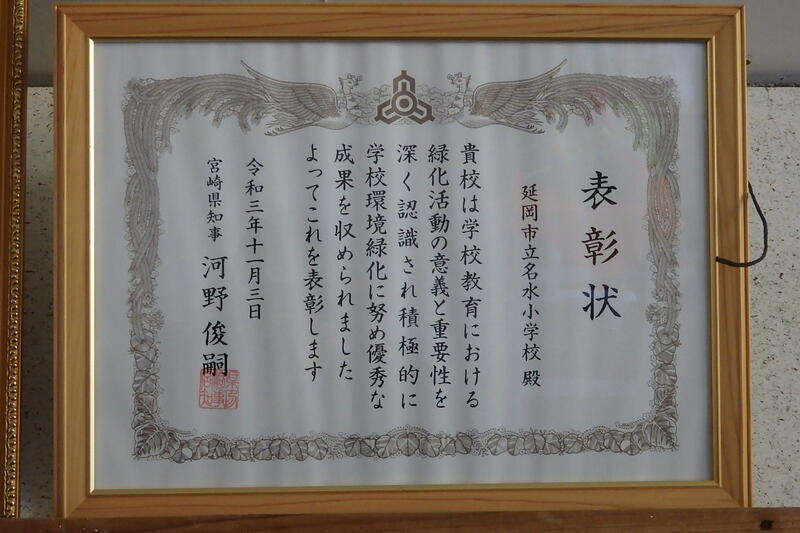 表彰状
延岡市立名水小学校 殿
貴校は学校教育における
緑化活動の意義と重要性を
深く認識され積極的に
学校環境緑化に努め優秀な
成果を収められました
よってこれを表彰します
令和三年十一月三日
宮崎県知事 河野俊嗣